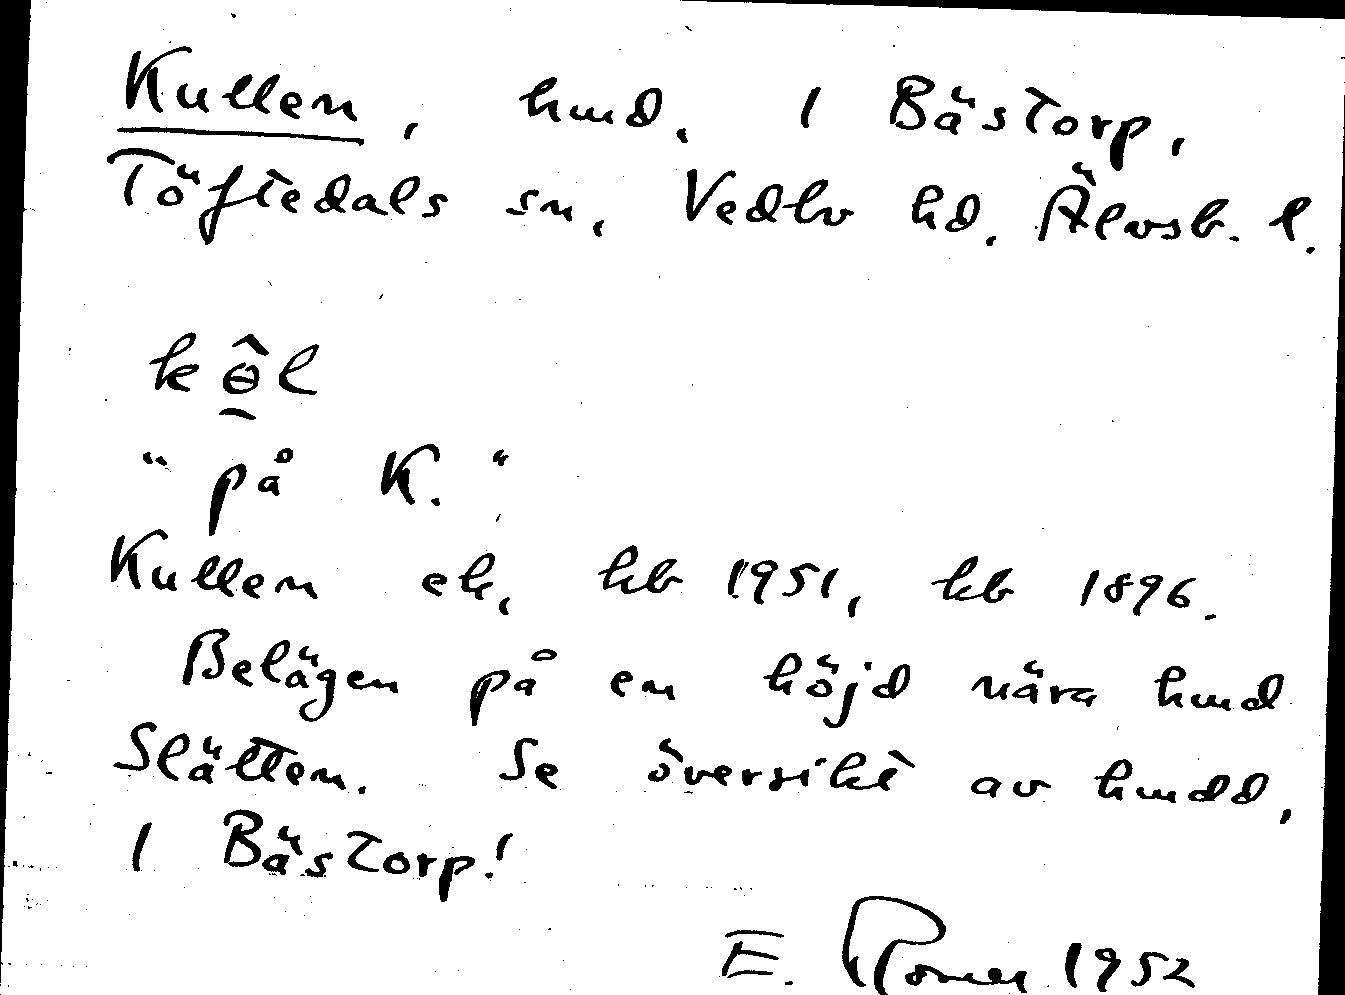 Kullen, hmd, 1 Bästorp,
Töftedals sn, Vedbo hd, Älvsb. l.
kɵ̂l
"på K."
Kullen ek, hb 1951, kb 1896.
Belägen på en höjd nära hmd
Slätten. Se översikt av hmdd,
1 Bästorp!
E. 1952